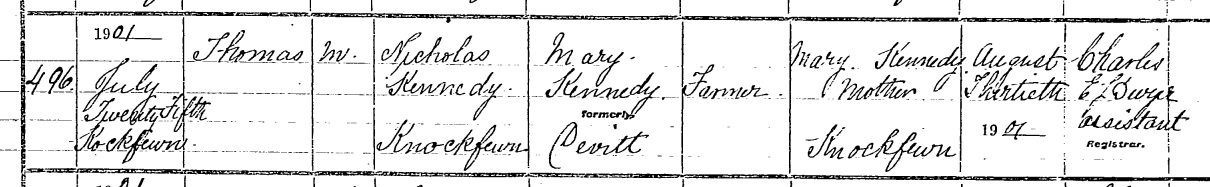 1901
496. July
Twenty Fifth
Kockfewn
Thomas
M.
Nicholas
Kennedy.
Knockfewn
Mary.
Kennedy.
formerly
Devitt
Farmer.
Mary Kennedy
Mother
Knockfewn
August
Thirtieth
1901
Charles
Assistant
Registrar.